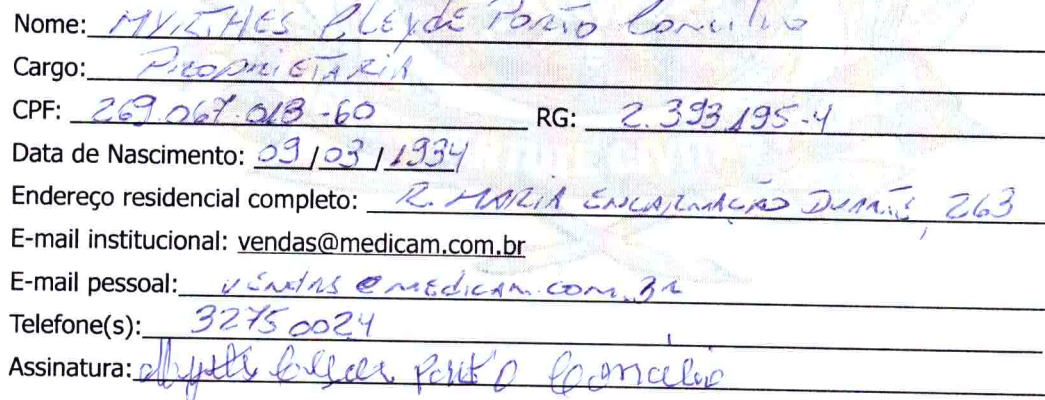 Nome: MYRTHES CLEYDE Porto Concilio
Cargo: PROPRIETARIA
CPF: 269.067.018-60 RG: 2.393.195-4
Data de Nascimento: 09/03/1934
Endereço residencial completo: R. MARIA ENCARNAÇÃO DUARTE, 263
E-mail institucional: vendas@medicam.com.br
E-mail pessoal: vendas@medicam.com.br
Telefone(s): 3275 0024
Assinatura: Porto Concilio